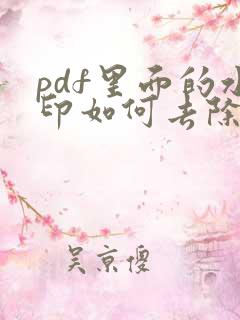 pdf里而的水
印如何去除
吴京傻